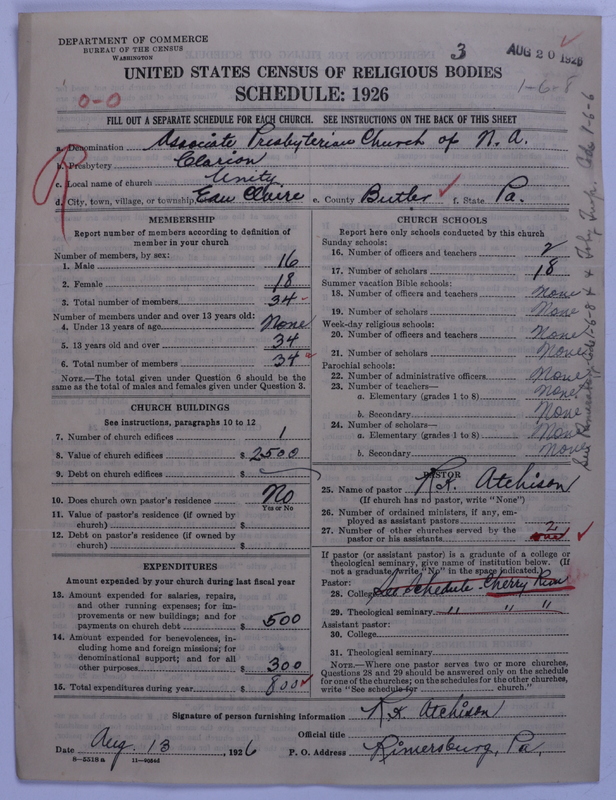 DEPARTMENT OF COMMERCE
BUREAU OF THE CENSUS
WASHINGTON
3
AUG 20 1926
UNITED STATES CENSUS OF RELIGIOUS BODIES
1-6-8
SCHEDULE: 1926
0-0
FILL OUT A SEPARATE SCHEDULE FOR EACH CHURCH. SEE INSTRUCTIONS ON THE BACK OF THIS SHEET
a. Denomination Associate Presbyterian Church of N. A.
b. Presbytery Clarion
c. Local name of church Unity
d. City, town, village, or township Eau Claire e. County Butler f. State Pa.
R
MEMBERSHIP
Report number of members according to definition of
member in your church
Number of members, by sex:
1. Male 16
2. Female 18
3. Total number of members 34
Number of members under and over 13 years old:
4. Under 13 years of age None
5. 13 years old and over 34
6. Total number of members 34
NOTE.—The total given under Question 6 should be the
same as the total of males and females given under Question 3.
CHURCH BUILDINGS
See instructions, paragraphs 10 to 12
7. Number of church edifices 1
8. Value of church edifices $ 2500
9. Debt on church edifices $
10. Does church own pastor's residence No
Yes or No
11. Value of pastor's residence (if owned by
church) $
12. Debt on pastor's residence (if owned by
church) $
EXPENDITURES
Amount expended by your church during last fiscal year
13. Amount expended for salaries, repairs,
and other running expenses; for im-
provements or new buildings; and for
payments on church debt $ 500
14. Amount expended for benevolences, in-
cluding home and foreign missions; for
denominational support; and for all
other purposes $ 300
15. Total expenditures during year $ 800
CHURCH SCHOOLS
Report here only schools conducted by this church
Sunday schools:
16. Number of officers and teachers 2
17. Number of scholars 18
Summer vacation Bible schools:
18. Number of officers and teachers None
19. Number of scholars None
Week-day religious schools:
20. Number of officers and teachers None
21. Number of scholars None
Parochial schools:
22. Number of administrative officers None
23. Number of teachers—
a. Elementary (grades 1 to 8) None
b. Secondary None
24. Number of scholars—
a. Elementary (grades 1 to 8) None
b. Secondary None
PASTOR
25. Name of pastor R. K. Atchison
(If church has no pastor, write "None")
26. Number of ordained ministers, if any, em-
ployed as assistant pastors
27. Number of other churches served by the
pastor or his assistants 2
If pastor (or assistant pastor) is a graduate of a college or
theological seminary, give name of institution below. (If
not a graduate, write "No" in the space indicated.)
Pastor:
28. College See Schedule - Cherry Run
29. Theological seminary " " "
Assistant pastor:
30. College
31. Theological seminary
NOTE.—Where one pastor serves two or more churches,
Questions 28 and 29 should be answered only on the schedule
for one of the churches; on the schedules for the other churches,
write "See schedule for church."
Signature of person furnishing information R. K. Atchison
Official title
Date Aug. 13, 1926 P. O. Address Rimersburg, Pa.
8-5318 a